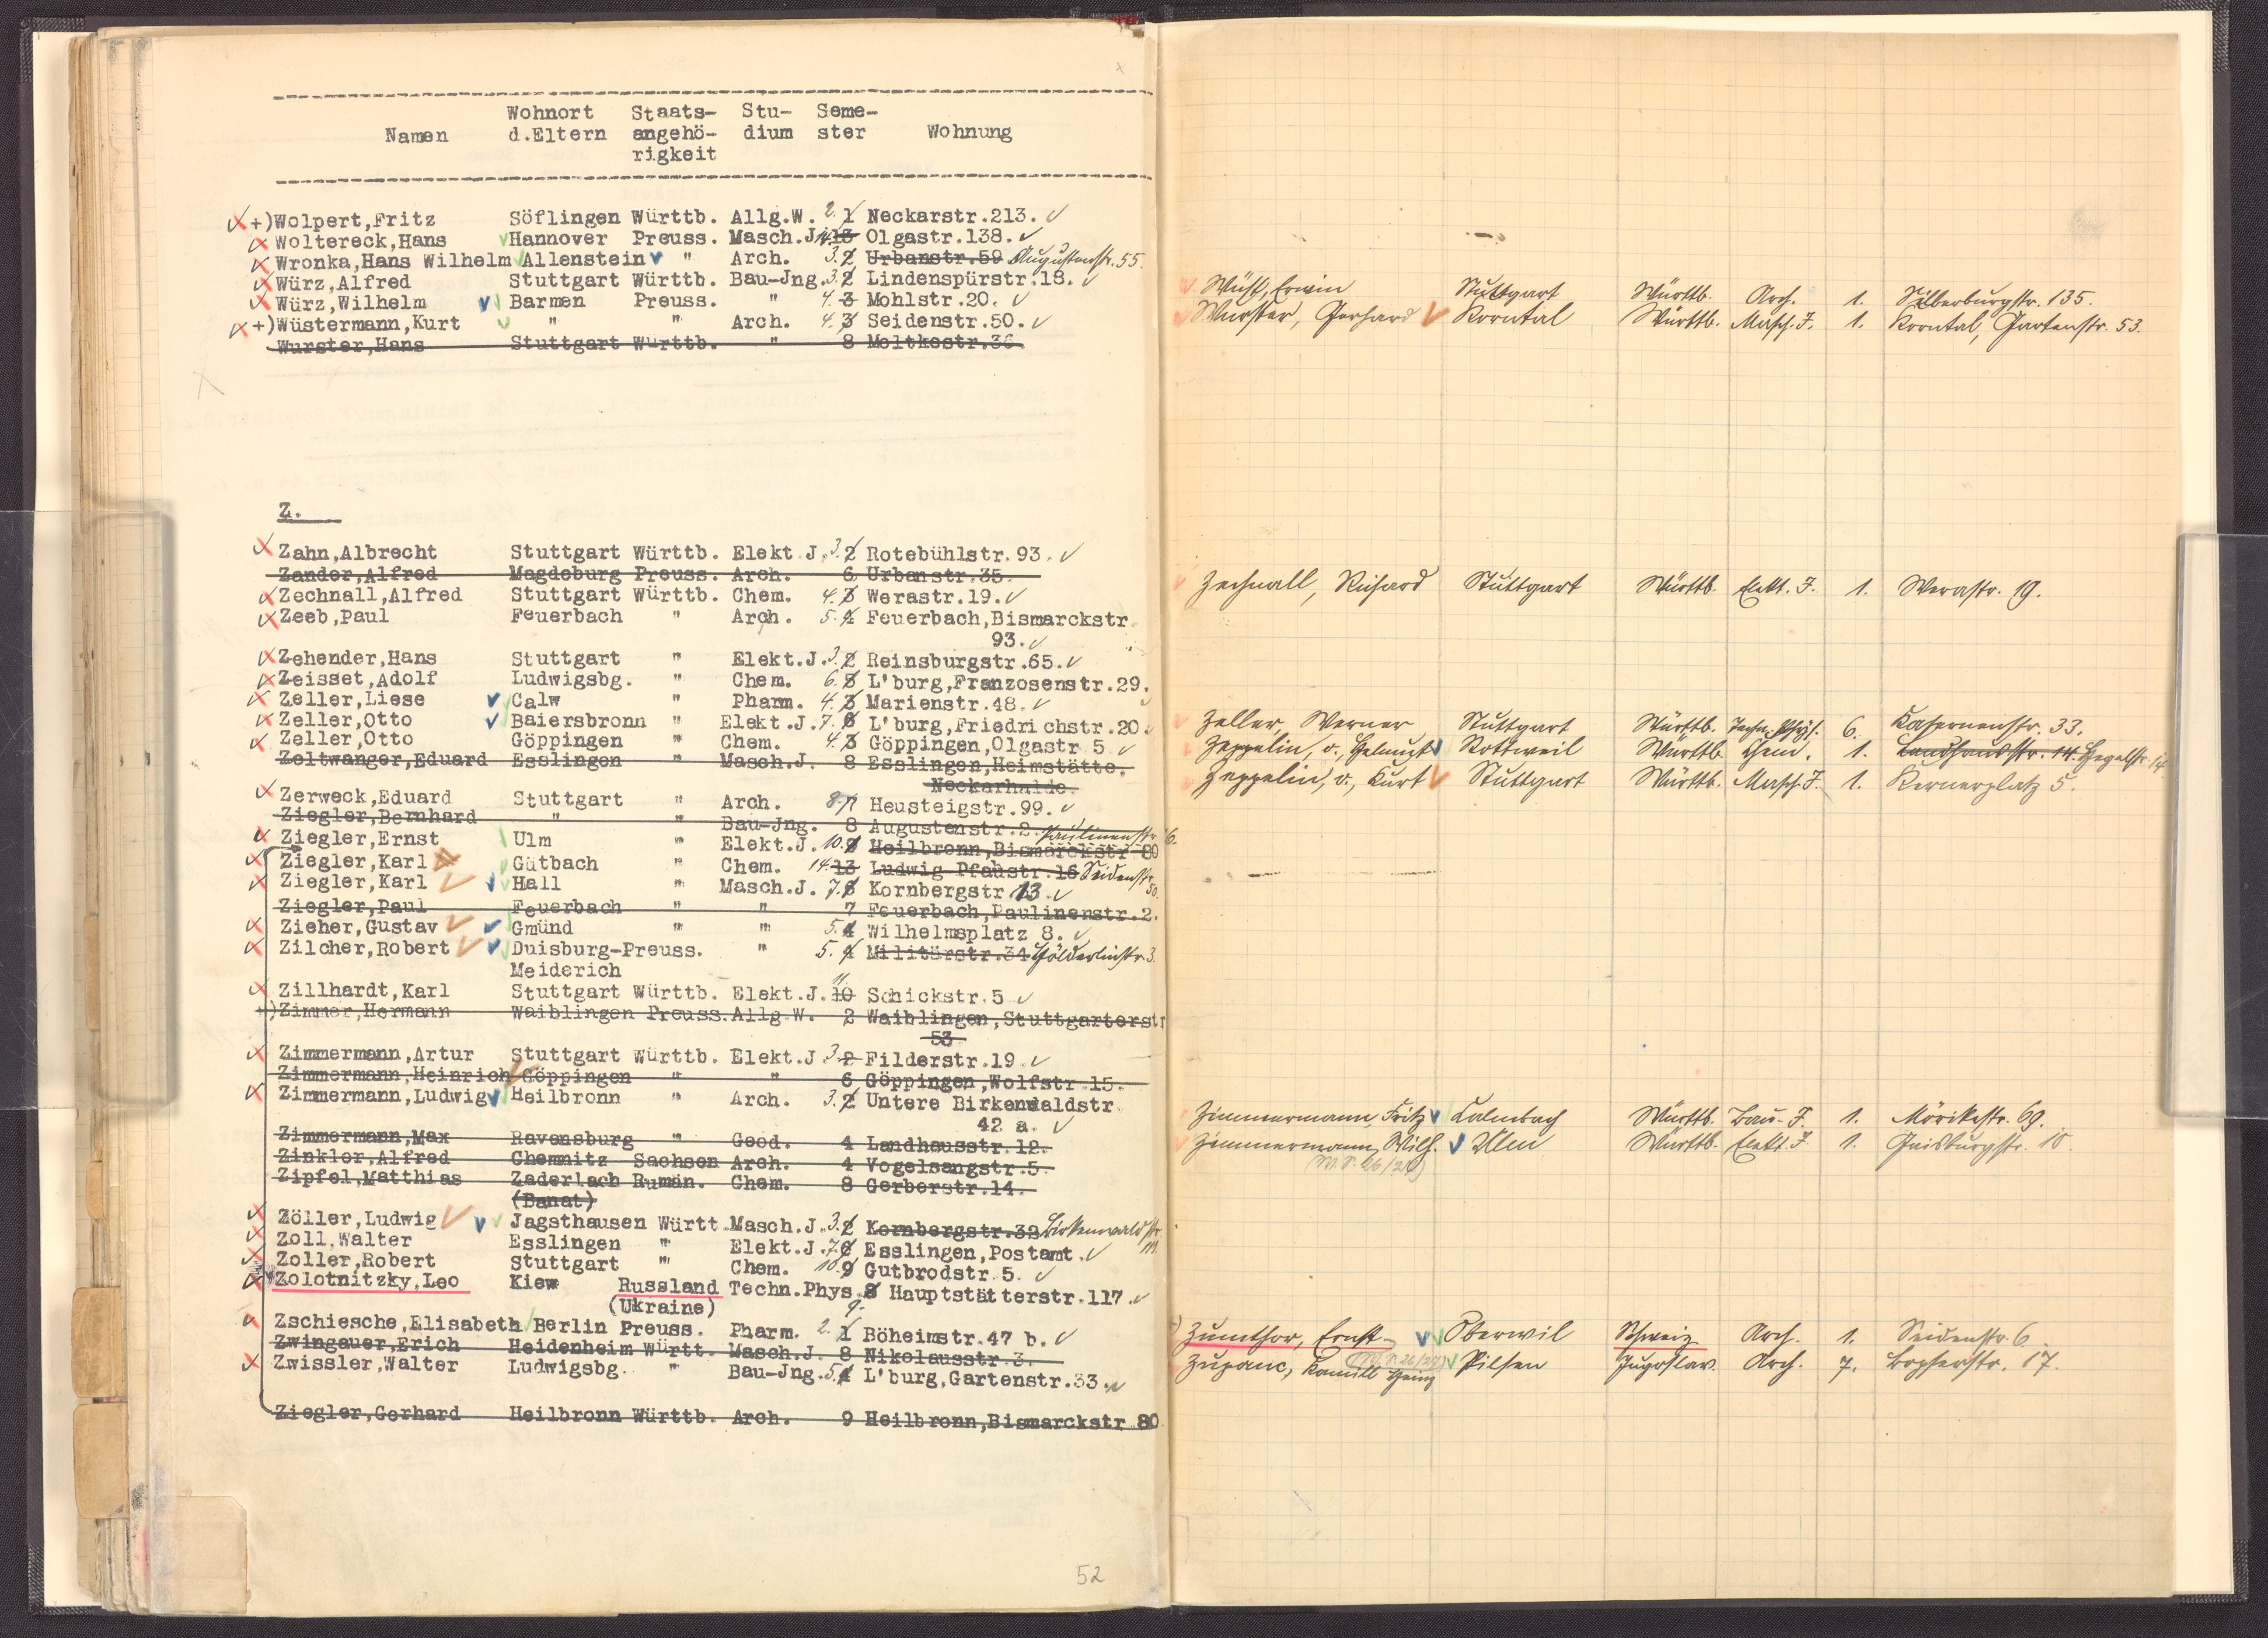 Wohnort Staats- Stu- Seme-
Namen d.Eltern angehö- dium ster Wohnung
rigkeit
+)Wolpert,Fritz Söflingen Württb. Allg.W. 2. 1 Neckarstr.213.
Woltereck,Hans Hannover Preuss. Masch.J. 14. 13 Olgastr.138.
Wronka,Hans Wilhelm Allenstein " Arch. 3. 2 Urbanstr.59 Augustenstr. 55.
Würz,Alfred Stuttgart Württb. Bau-Jng. 3. 2 Lindenspürstr.18.
Würz,Wilhelm Barmen Preuss. " 4. 3 Mohlstr.20.
+)Wüstermann,Kurt " " Arch. 4. 3 Seidenstr.50.
Wurster,Hans Stuttgart Württb. " 8 Moltkestr.36.
Z.
Zahn,Albrecht Stuttgart Württb. Elekt J. 3. 2 Rotebühlstr.93.
Zander,Alfred Magdeburg Preuss. Arch. 6 Urbanstr.35.
Zechnall,Alfred Stuttgart Württb. Chem. 4. 3 Werastr.19.
Zeeb,Paul Feuerbach " Arch. 5. 4 Feuerbach,Bismarckstr.
93.
Zehender,Hans Stuttgart " Elekt.J. 3. 2 Reinsburgstr.65.
Zeisset,Adolf Ludwigsbg. " Chem. 6. 5 L'burg,Franzosenstr.29.
Zeller,Liese Calw " Pharm. 4. 3 Marienstr.48.
Zeller,Otto Baiersbronn " Elekt.J. 7. 6 L'burg,Friedrichstr.20.
Zeller,Otto Göppingen " Chem. 4. 3 Göppingen,Olgastr 5
Zeltwanger,Eduard Esslingen " Masch.J. 8 Esslingen,Heimstätte.
Neckarhalde.
Zerweck,Eduard Stuttgart " Arch. 8. 7 Heusteigstr.99.
Ziegler,Bernhard " " Bau-Jng. 8 Augustenstr.2.
Ziegler,Ernst Ulm " Elekt.J. 10. 9 Heilbronn,Bismarckstr 80 Paulinenstr. 6.
Ziegler,Karl Gütbach " Chem. 14. 13 Ludwig Pfaustr.16 Seidenstr. 50.
Ziegler,Karl Hall " Masch.J. 7. 6 Kornbergstr.13.
Ziegler,Paul Feuerbach " " 7 Feuerbach,Paulinenstr.2.
Zieher,Gustav Gmünd " " 5. 4 Wilhelmsplatz 8.
Zilcher,Robert Duisburg-Preuss. " 5. 4 Militärstr.34 Hölderlinstr. 3.
Meiderich
Zillhardt,Karl Stuttgart Württb. Elekt.J. 11. 10 Schickstr.5
+)Zimmer,Hermann Waiblingen Preuss. Allg W. 2 Waiblingen,Stuttgarterstr
53
Zimmermann,Artur Stuttgart Württb. Elekt.J 3. 2 Filderstr.19.
Zimmermann,Heinrich Göppingen " " 6 Göppingen,Wolfstr 15.
Zimmermann,Ludwig Heilbronn " Arch. 3. 2 Untere Birkenwaldstr.
42 a.
Zimmermann,Max Ravensburg " Geod. 4 Landhausstr.12.
Zinkler,Alfred Chemnitz Sachsen Arch. 4 Vogelsangstr.5.
Zipfel,Matthias Zaderlach Rumän. Chem. 8 Gerberstr.14.
(Banat)
Zöller,Ludwig Jagsthausen Württ. Masch.J. 3. 2 Kornbergstr.32 Birkenwaldstr.
Zoll,Walter Esslingen " Elekt.J. 7. 6 Esslingen,Postamt.
Zoller,Robert Stuttgart " Chem. 10. 9 Gutbrodstr.5.
Zolotnitzky,Leo Kiew Russland Techn.Phys. 8 Hauptstätterstr.117.
(Ukraine) 9.
Zschiesche,Elisabeth Berlin Preuss. Pharm. 2. 1 Böheimstr.47 b.
Zwingauer,Erich Heidenheim Württ. Masch.J. 8 Nikolausstr.3.
Zwissler,Walter Ludwigsbg. " Bau-Jng. 5. 4 L'burg,Gartenstr.33.
Ziegler,Gerhard Heilbronn Württb. Arch. 9 Heilbronn,Bismarckstr.80
52
Wüst, Erwin Stuttgart Württb. Arch. 1. Silberburgstr. 135.
Wurster, Gerhard Korntal Württb. Masch. J. 1. Korntal, Gartenstr. 53.
Zechnall, Richard Stuttgart Württb. Elekt. J. 1. Werastr. 19.
Zeller, Werner Stuttgart Württb. Techn. Phys. 6. Kasernenstr. 33.
Zeppelin, v., Helmut Rottweil Württb. Chem. 1. Landhausstr. 14. Hegelstr. 14.
Zeppelin, v., Kurt Stuttgart Württb. Masch. J. 1. Kernerplatz 5.
Zimmermann, Fritz Calmbach Württb. Bau. J. 1. Mörikestr. 69.
Zimmermann, Wilh. Ulm Württb. Elekt. J. 1. Gaisburgstr. 10.
(W.S. 26/27)
Zumthor, Ernst Oberwil Schweiz Arch. 1. Seidenstr. 6.
(W.S. 26/27)
Zupanc, Kamill Heinz Pilsen Jugoslav. Arch. 7. Bopserstr. 17.